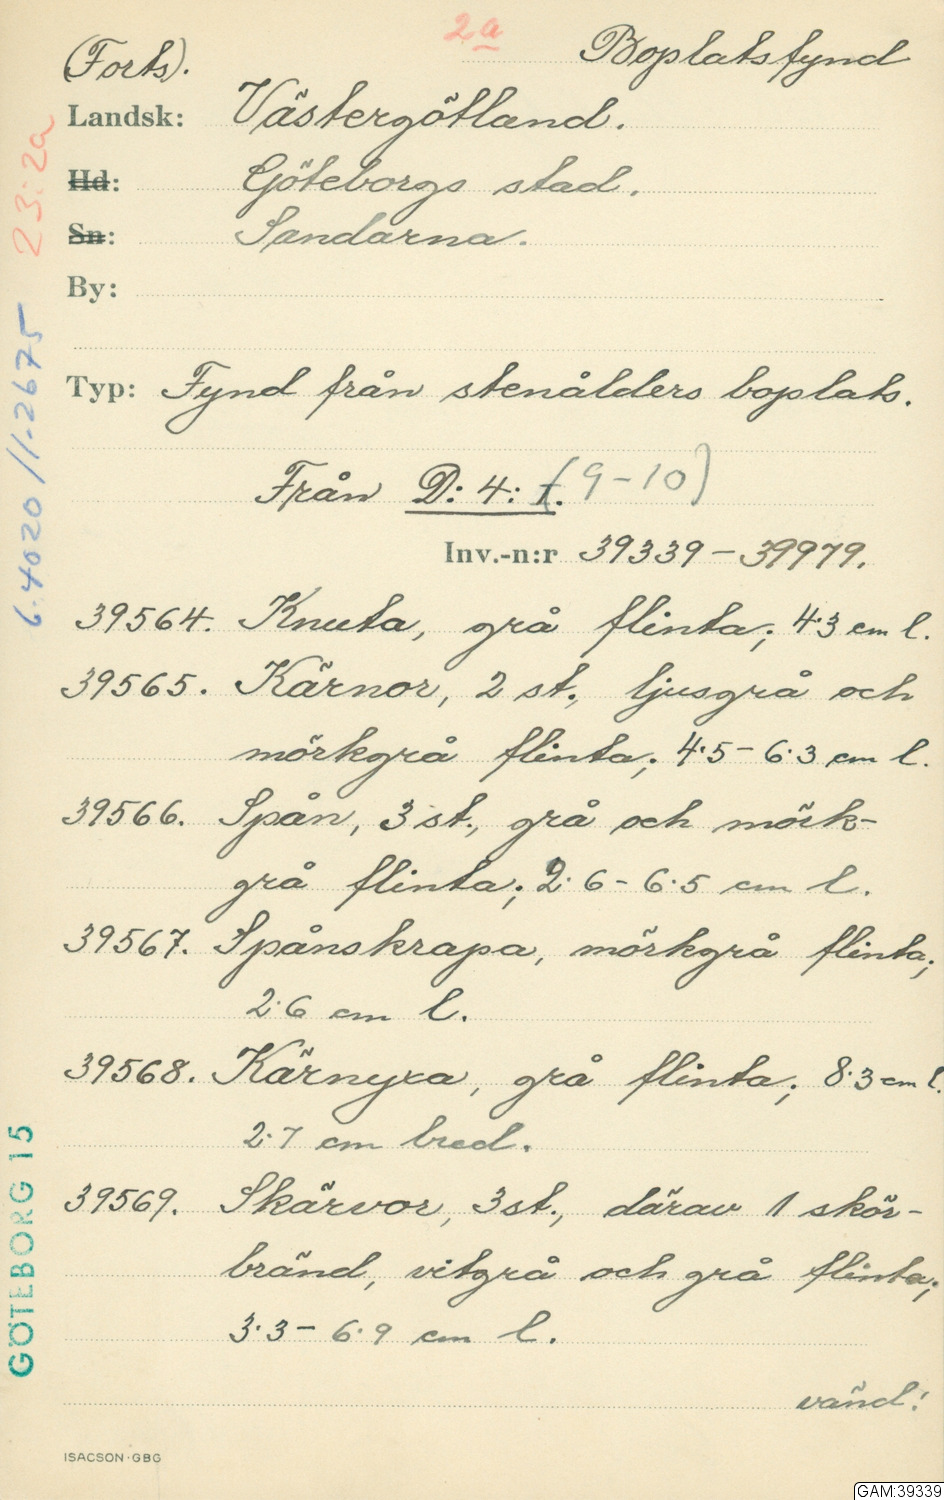 2a
(Forts).
Boplatsfynd
Landsk: Västergötland.
Hd: Göteborgs stad.
Sn: Sandarna.
By:
Typ: Fynd från stenålders boplats.
Från D: 4: (9-10)
Inv.-n:r 39339-39979.
39564. Knuta, grå flinta; 4·3 cm l.
39565. Kärnor, 2 st., ljusgrå och
mörkgrå flinta; 4·5-6·3 cm l.
39566. Spån, 3 st., grå och mörk-
grå flinta; 2·6-6·5 cm l.
39567. Spånskrapa, mörkgrå flinta;
2·6 cm l.
39568. Kärnyxa, grå flinta; 8·3 cm l.
2·7 cm bred.
39569. Skärvor, 3 st., därav 1 skör-
bränd, vitgrå och grå flinta;
3·3-6·9 cm l.
vänd!
ISACSON·GBG
23:2a
6.4020//1-2675
GÖTEBORG 15
GAM:39339